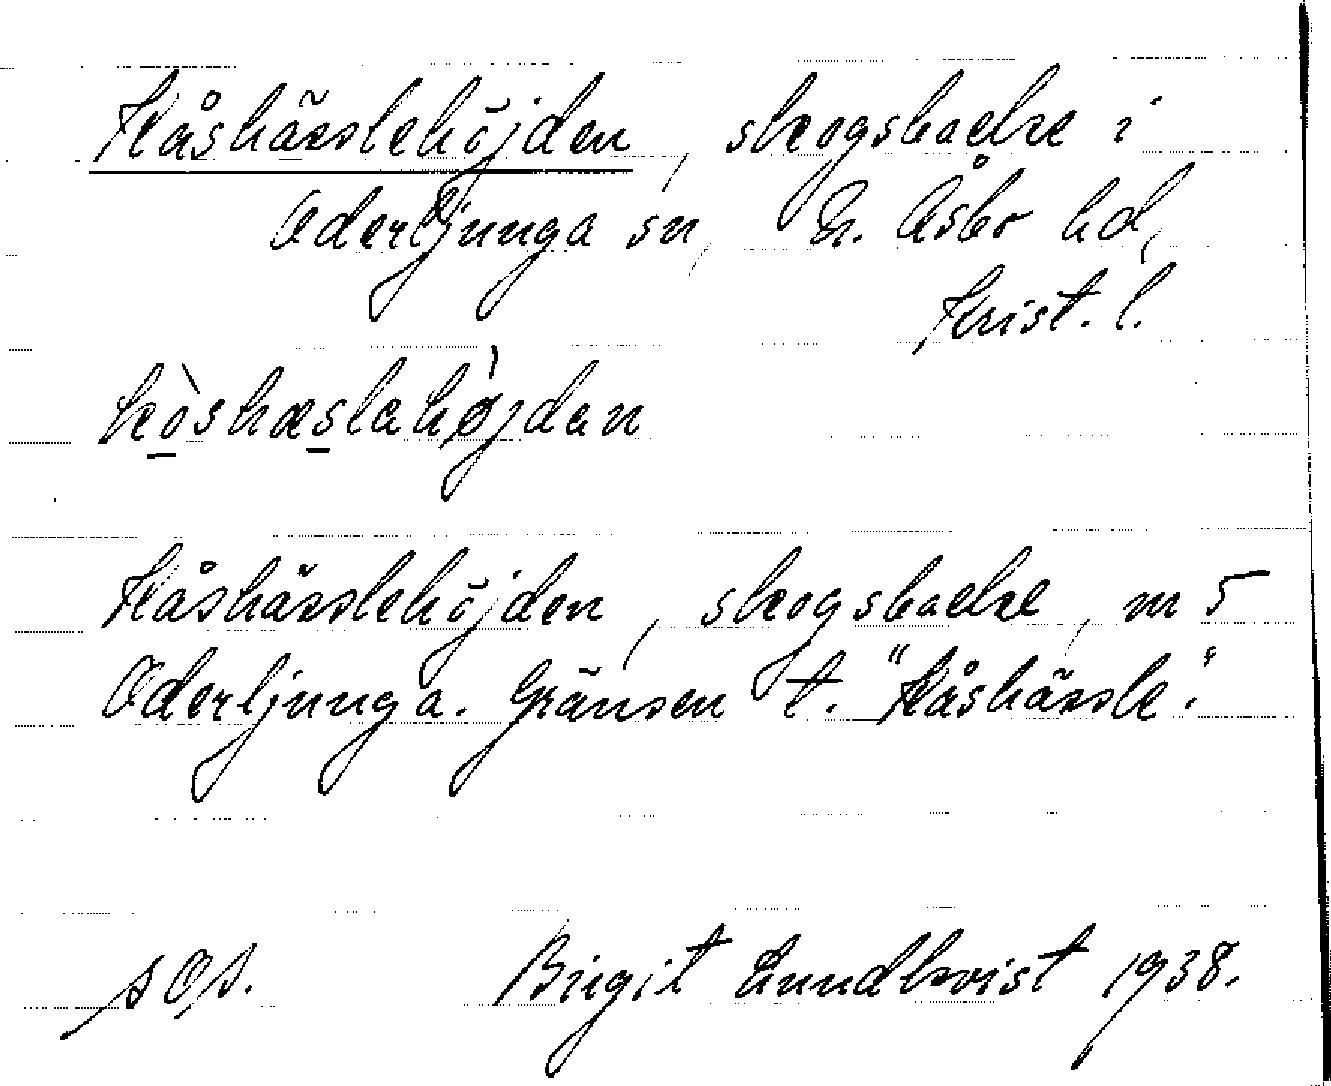 Kåshässlehöjden, skogsbacke i
Oderljunga sn, N. Åsbo hd,
Krist. l.
kòshæslahø̀jdan
Kåshässlehöjden, skogsbacke, m 5
Oderljunga. Gränsen t. "Kåshässle".
s Os.
Birgit Lundkvist 1938.